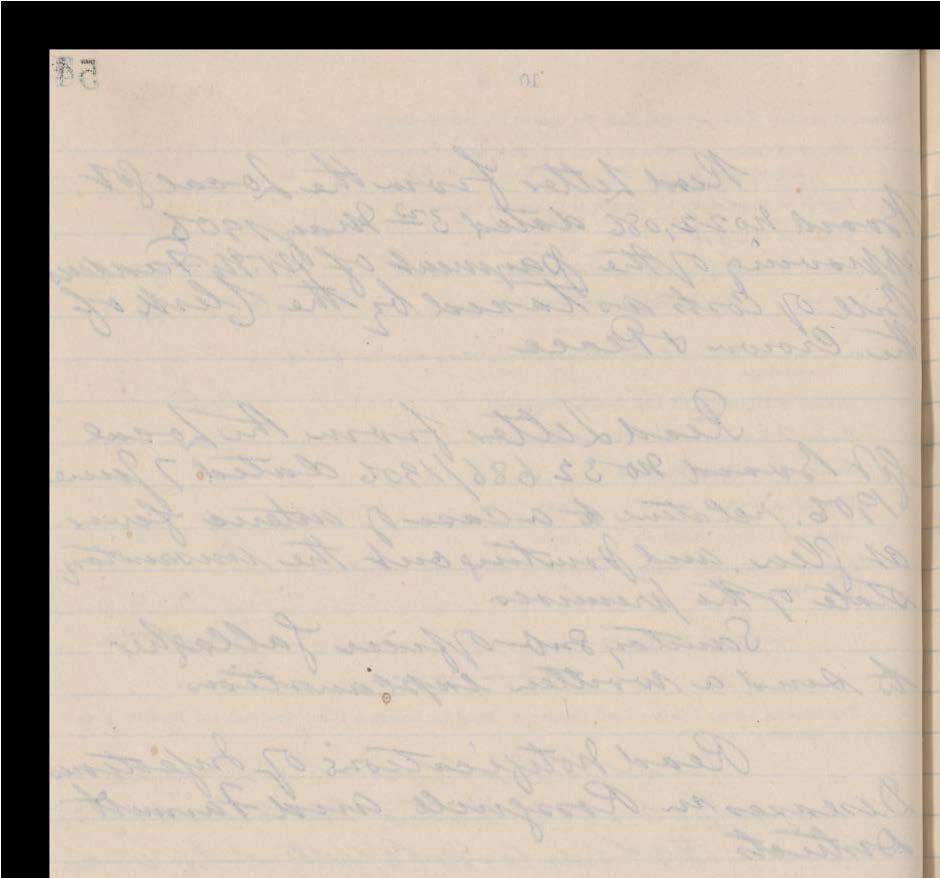 54
10
Read letter from the Local Gt
Board No 22,086 dated 3rd May, 1906
approving of the payment of
Bill of Costs as taxed by the Clerk of
the Crown & Peace
Read Letter from the Local
Gt Board No 32 686/1906 dated 7 June
1906, relative to a case of enteric fever
at and pointing out the insanitary
state of the premises
Sanitary Sub Officer Gallagher
to send a written explanation
Read Notifications of Infectious
Diseases in Rosguill and
Districts